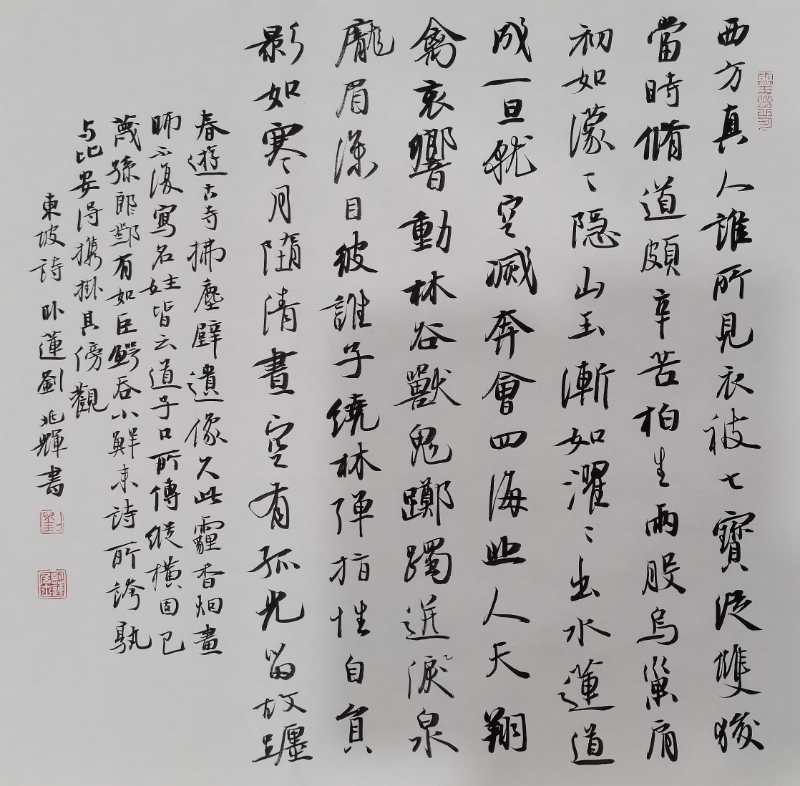 西方真人誰所見衣被七寶從雙狻
當時脩道頗辛苦柏生兩股烏巢肩
初如濛〻隐山玉漸如濯〻出水蓮道
成一旦就空滅奔會四海悲人天翔
禽哀響動林谷獸鬼躑躅迸淚泉
龐眉深目彼誰子繞林彈指性自員
影如寒月隨清晝空有孤光留故躔
春遊古寺拂塵壁遺像久此霾香烟畫
師不復寫名姓皆云道子口所傳縱橫固已
蔑孫郎鄧有如巨鰐吞小鮮来詩所誇孰
与此安得攜掛其傍觀
東坡詩 卧蓮劉兆輝書